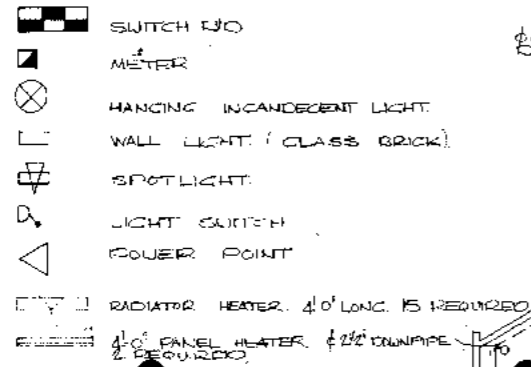 SWITCH B/D
METER
HANGING INCANDECENT LIGHT.
WALL LIGHT. (GLASS BRICK)
SPOTLIGHT.
LIGHT SWITCH
POWER POINT
RADIATOR HEATER. 4'0" LONG. 15 REQUIRED
4'-0" PANEL HEATER
2 REQUIRED